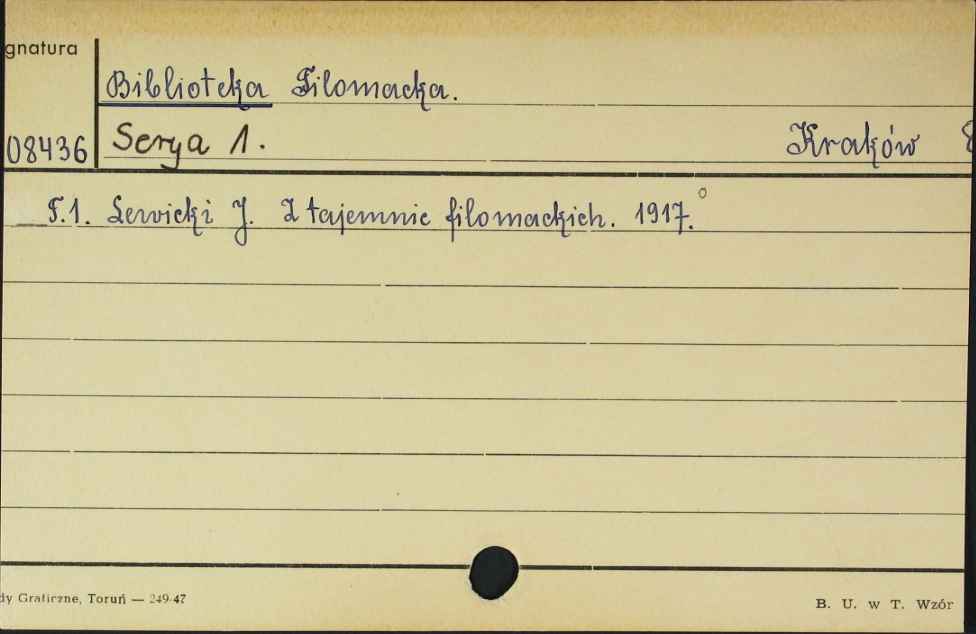 gnatura
Biblioteka Filomacka.
08436 Serya 1. Kraków 8
T.1. Lewicki J. Z tajemnic filomackich. 1917.°
dy Graficzne, Toruń — 249-47
B. U. w T. Wzór